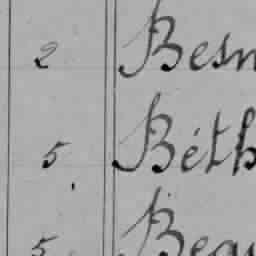 2 Besn
5. Béth
5 Beau